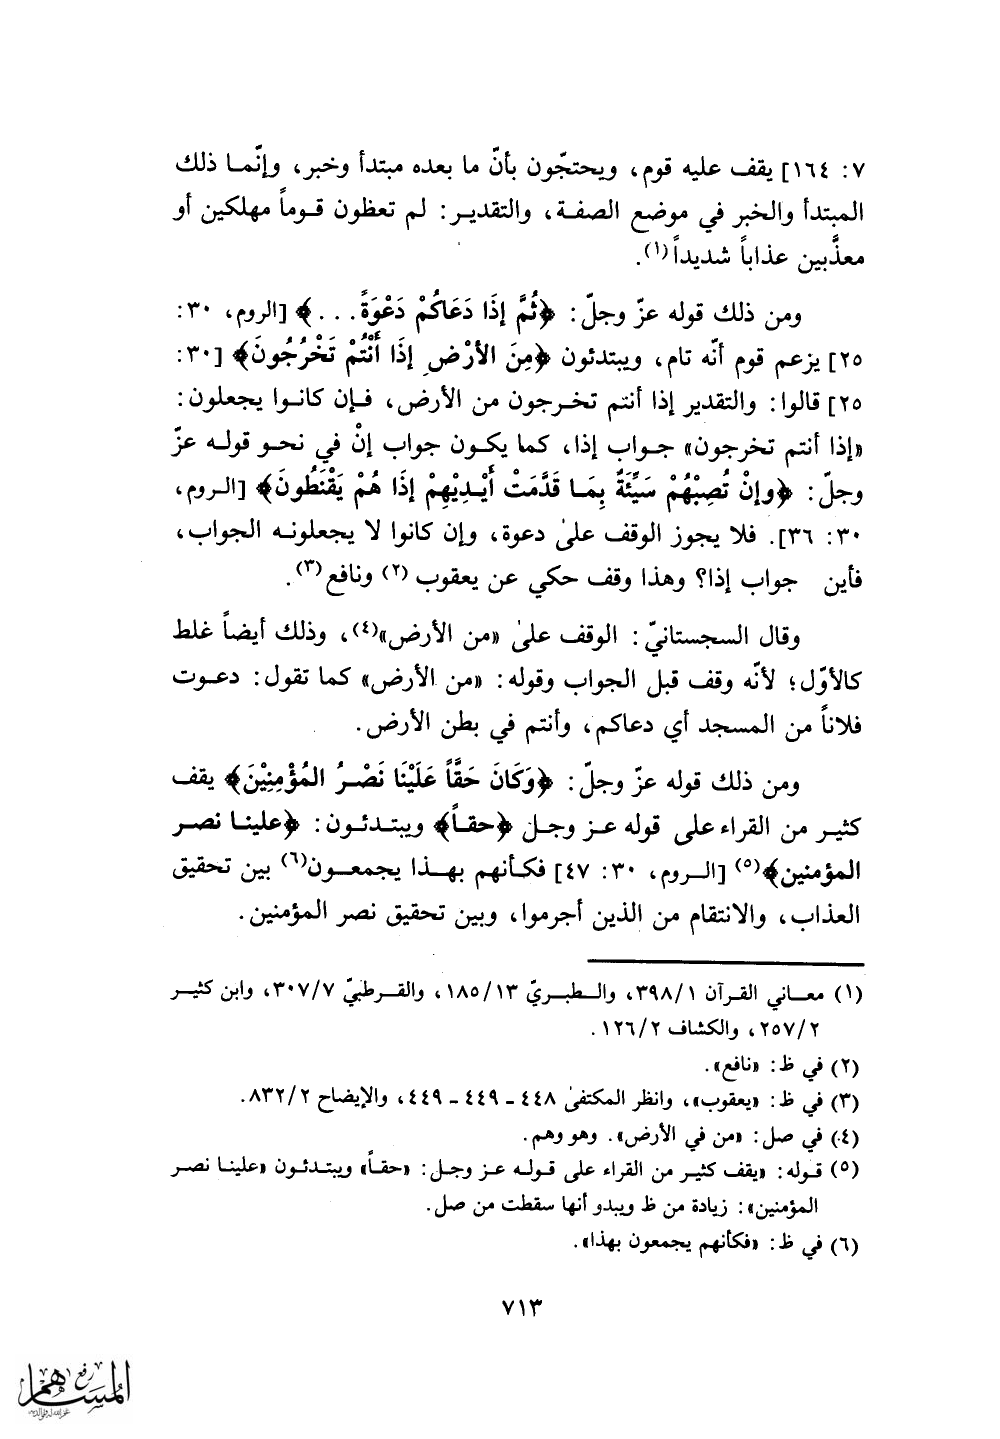 ٧: ١٦٤] يقف عليه قوم، ويحتجّون بأنّ ما بعده مبتدأ وخبر، وإنّما ذلك
المبتدأ والخبر في موضع الصفة، والتقدير: لم تعظون قوماً مهلكين أو
معذَّبين عذاباً شديداً(١).
ومن ذلك قوله عزّ وجلّ: ﴿ثُمَّ إذَا دَعَاكُمْ دَعْوَةً. . .﴾ [الروم، ٣٠:
٢٥] يزعم قوم أنّه تام، ويبتدئون ﴿مِنَ الأرْضِ إذَا أَنْتُمْ تَخْرُجُونَ﴾ [٣٠:
٢٥] قالوا: والتقدير إذا أنتم تخرجون من الأرض، فإن كانوا يجعلون:
«إذا أنتم تخرجون» جواب إذا، كما يكون جواب إنْ في نحو قوله عزّ
وجلّ: ﴿وإنْ تُصِبْهُمْ سَيِّئَةٌ بِمَا قَدَّمَتْ أَيْدِيهِمْ إذَا هُمْ يَقْنَطُونَ﴾ [الروم،
٣٠: ٣٦]. فلا يجوز الوقف علىٰ دعوة، وإن كانوا لا يجعلونه الجواب،
فأين جواب إذا؟ وهذا وقف حكي عن يعقوب (٢) ونافع (٣).
وقال السجستانيّ: الوقف علىٰ «من الأرض»(٤)، وذلك أيضاً غلط
كالأوّل؛ لأنّه وقف قبل الجواب وقوله: «من الأرض» كما تقول: دعوت
فلاناً من المسجد أي دعاكم، وأنتم في بطن الأرض.
ومن ذلك قوله عزّ وجلّ: ﴿وَكَانَ حَقَّاً عَلَيْنَا نَصْرُ المُؤْمِنِيْنَ﴾ يقف
كثير من القراء على قوله عز وجل ﴿حقاً﴾ ويبتدئون: ﴿علينا نصر
المؤمنين﴾(٥) [الروم، ٣٠: ٤٧] فكأنهم بهذا يجمعون(٦) بين تحقيق
العذاب، والانتقام من الذين أجرموا، وبين تحقيق نصر المؤمنين.
(١) معاني القرآن ٣٩٨/١، والطبريّ ١٨٥/١٣، والقرطبيّ ٣٠٧/٧، وابن كثير
٢٥٧/٢، والكشاف ١٢٦/٢.
(٢) في ظ: «نافع».
(٣) في ظ: «يعقوب»، وانظر المكتفىٰ ٤٤٨ ـ ٤٤٩ ـ ٤٤٩، والإيضاح ٨٣٢/٢.
(٤) في صل: «من في الأرض». وهو وهم.
(٥) قوله: «يقف كثير من القراء على قوله عز وجل: «حقاً» ويبتدئون «علينا نصر
المؤمنين»: زيادة من ظ ويبدو أنها سقطت من صل.
(٦) في ظ: «فكأنهم يجمعون بهذا».
٧١٣